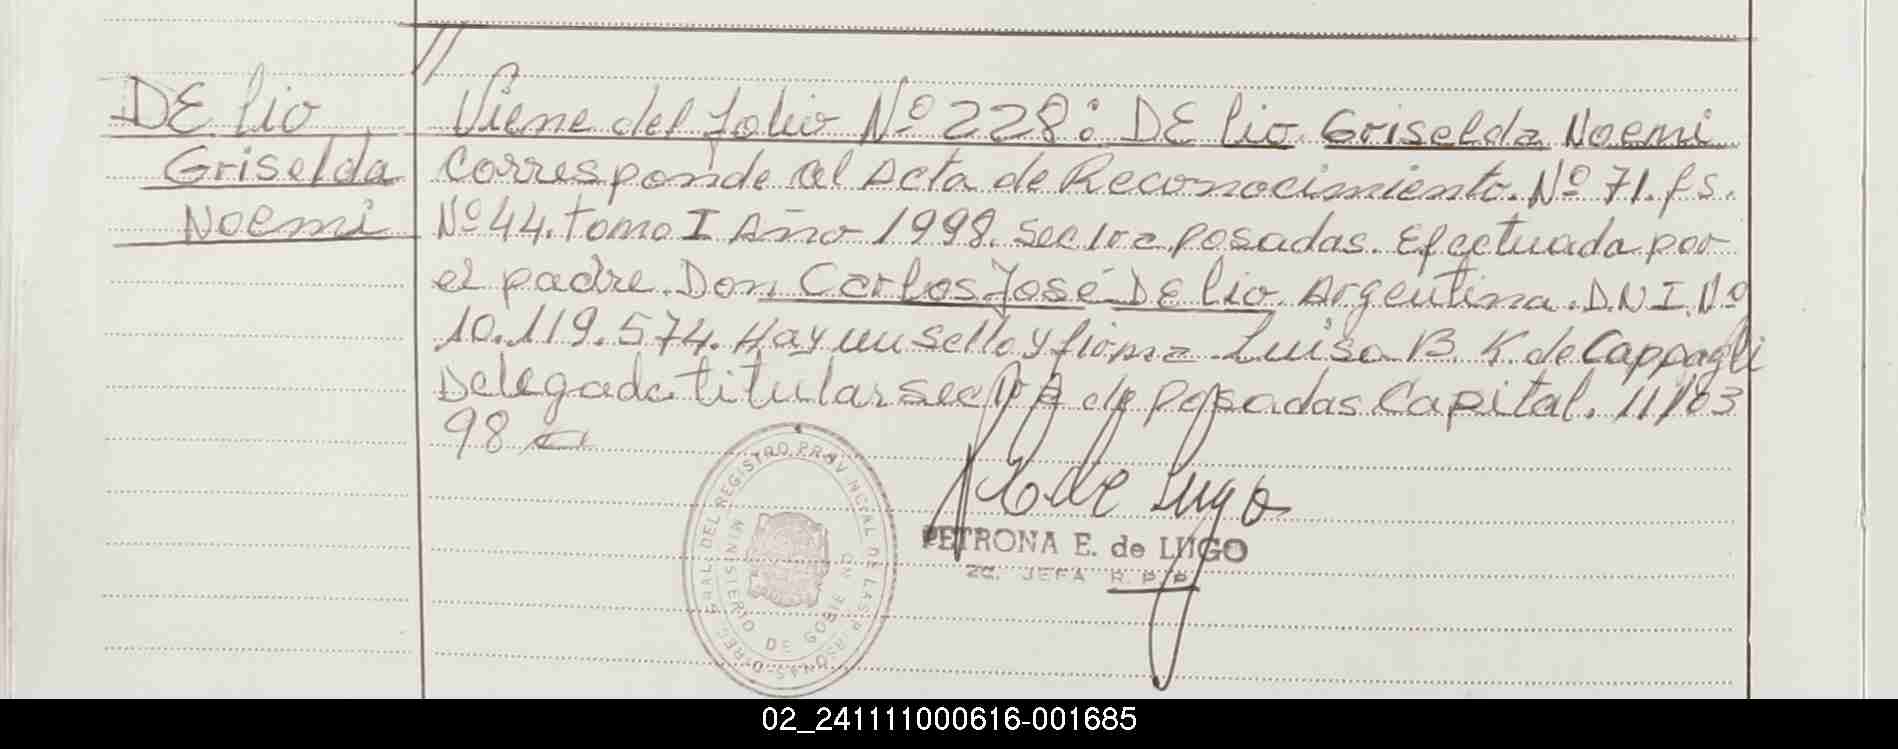 //
DE lio
Griselda
Noemi
Viene del folio Nº 228: DE lio Griselda Noemi
Corresponde al Acta de Reconocimiento. Nº 71. fs.
Nº 44. tomo I Año 1998. Secc 1ra posadas. Efectuada por
el padre. Don Carlos José DE lio. Argentina. D.N.I. Nº
10.119.574. Hay un sello y firma Luisa B K de Cappagli
Delegada titular secc 1ra de Posadas Capital. 11/03
98
R E de Lugo
PETRONA E. de LUGO
2a. JEFA R. P. P.
REG. GRAL. DEL REGISTRO PROVINCIAL DE LAS PERSONAS
MINISTERIO DE GOBIERNO
02_241111000616-001685